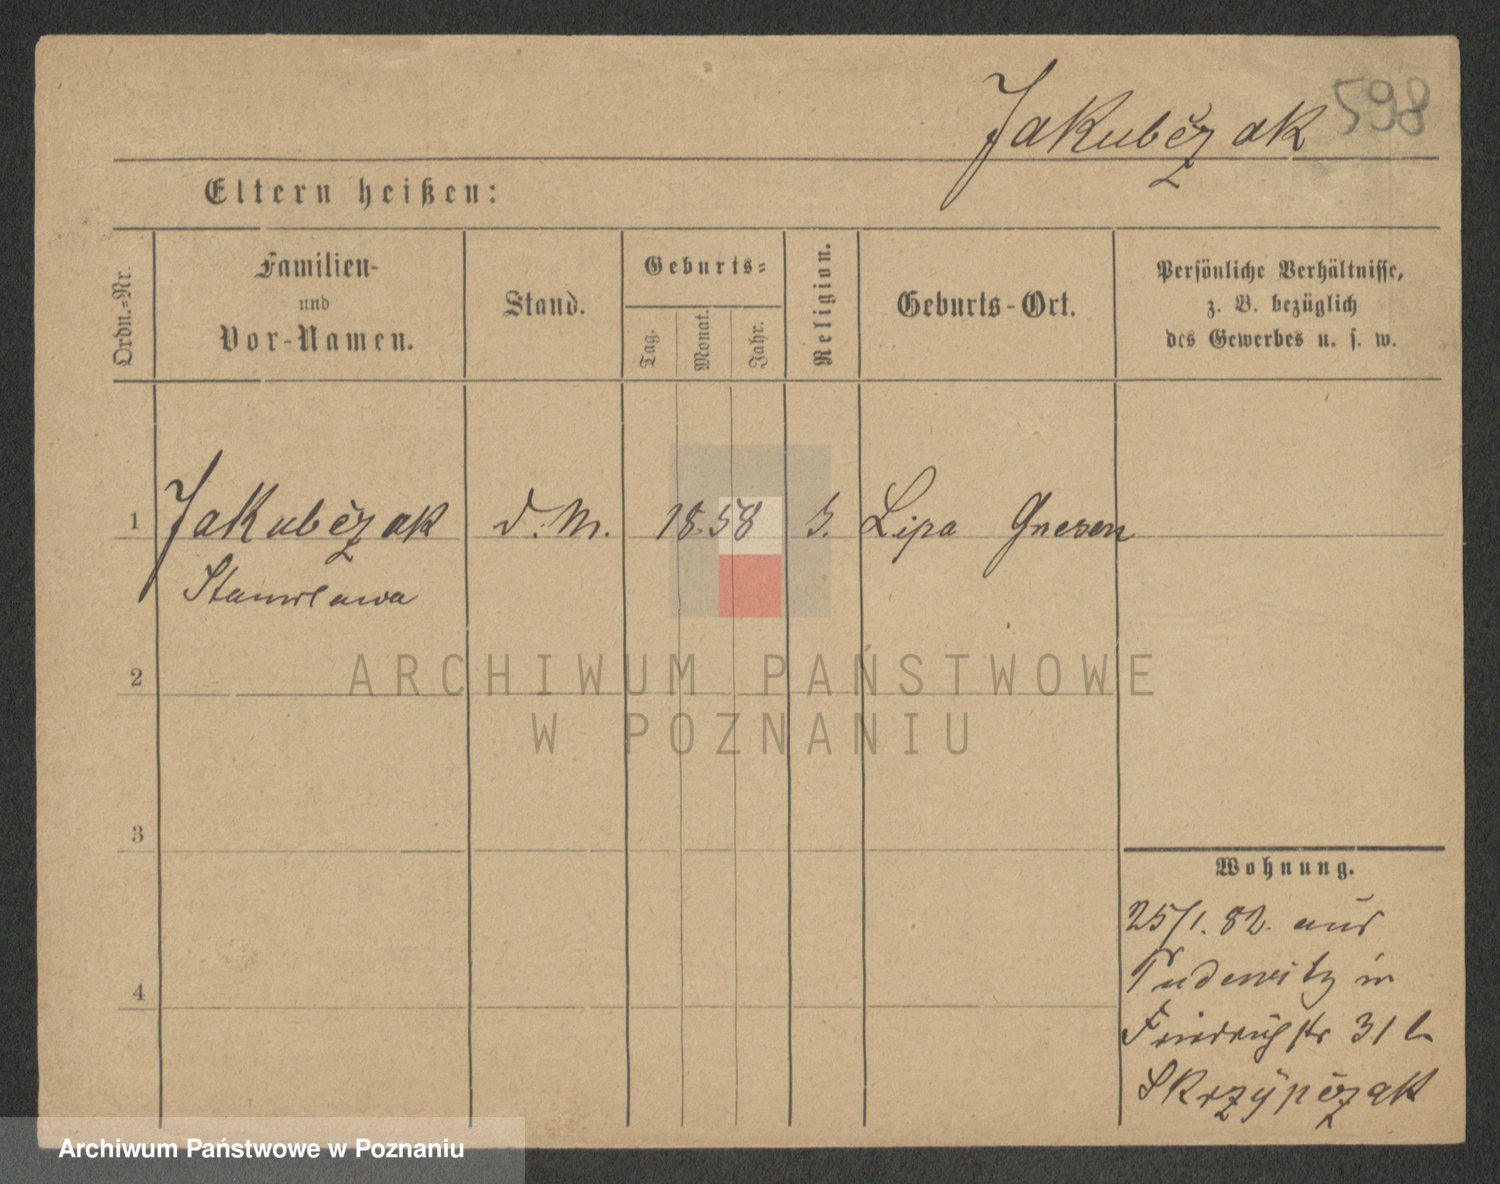 Jakubczak 598
Eltern heißen:
Ordn.-Nr.
Familien-
und
Vor-Namen.
Stand.
Geburts-
Tag.
Monat.
Jahr.
Religion.
Geburts-Ort.
Persönliche Verhältnisse,
z. B. bezüglich
des Gewerbes u. s. w.
1 Jakubczak d. M. 18.58 Lipa Gnesen
Stanislawa
2
3
4
Wohnung.
25/1. 82. aus
Pudewitz in
Friedrichstr 31 b
Skrzypczak
ARCHIWUM PAŃSTWOWE
W POZNANIU
Archiwum Państwowe w Poznaniu